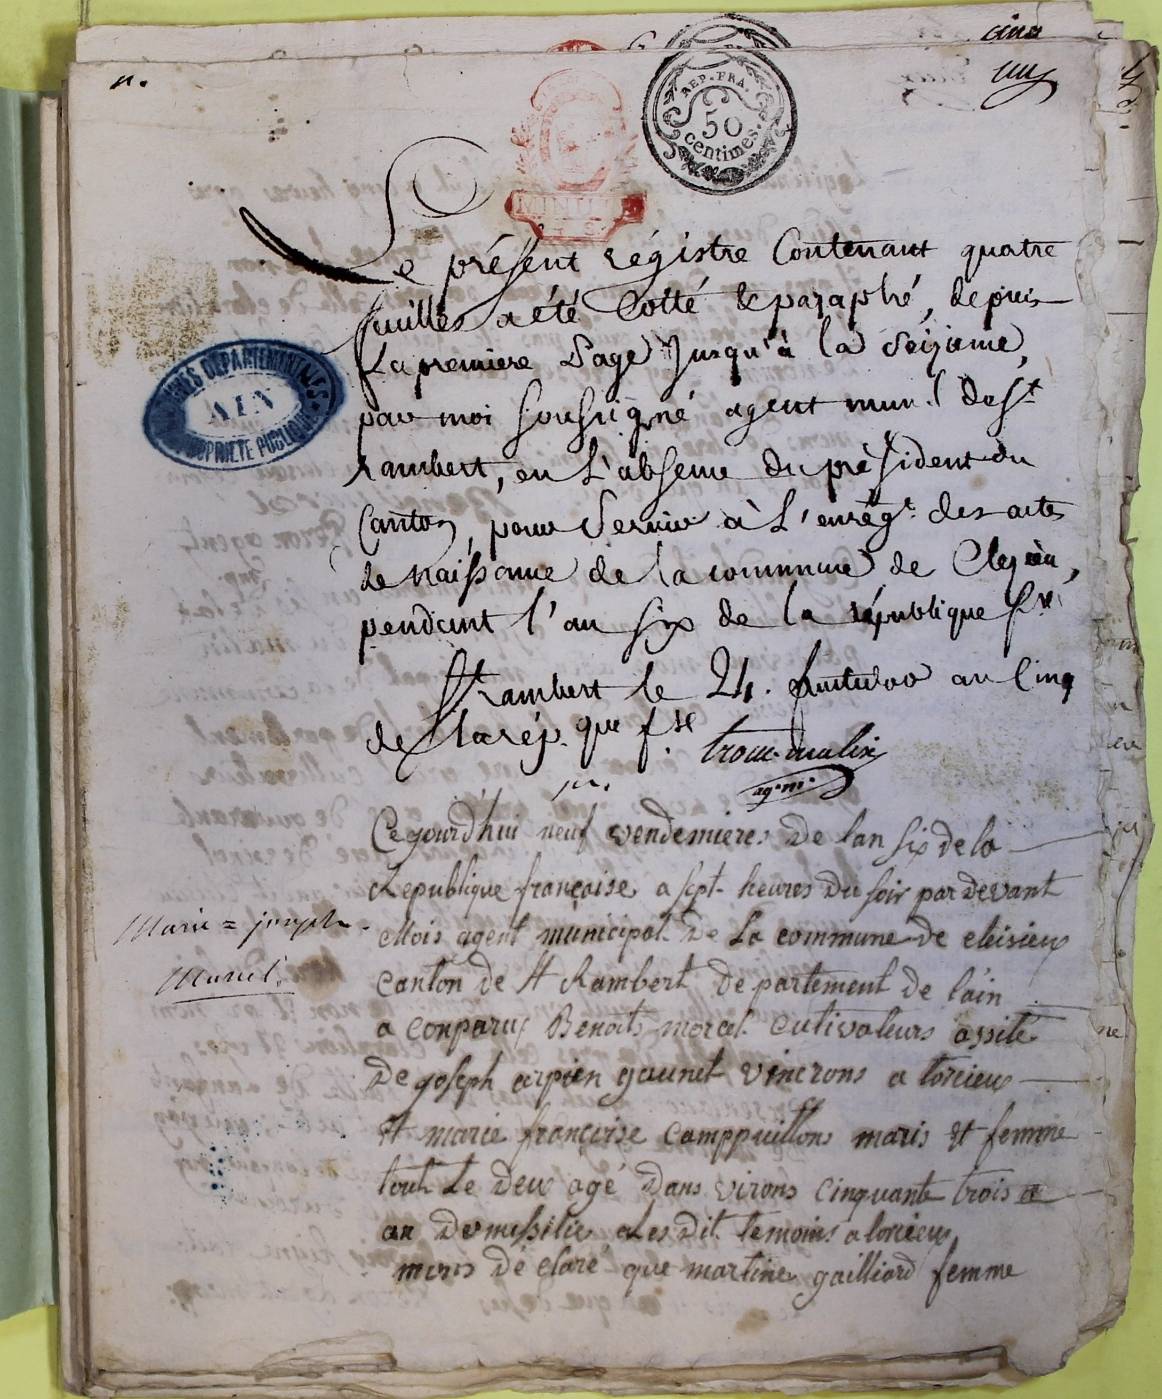 n.
cinq
un
REP. FRA.
50
centimes.
MINUTE
Le présent régistre Contenant quatre
feuilles a été Cotté & paraphé, depuis
La premiere Page Jusqu'à la Séizieme,
par moi Soussigné agent mun.l de St
Rambert, en L'absence du président du
Canton, pour Servir à L'enrég.t des actes
de naissance de la commune de Cleyzieu,
pendant l'an six de la république f.se
St Rambert le 24. fructidor an Cinq
de la rép. que f.se
trocu-mulin
ag.m.
ARCHIVES DEPARTEMENTALES
AIN
PROPRIETE PUBLIQUE
n.
Cejourd'hui neuf vendemieres De lan Six de la
Republique françoise a sept heures Du soir par devant
Mois agent municipal De La commune de cleisieu
canton de St Rambert De partement de l'ain
a conparus Benoits morcel cutivateurs assité
De joseph arpien gaunet vincrons a torcieu
et marie françoise camppuillons maris et femme
tout Le deux agé Dans virons cinquante trois
an Demisilié Les dit temoins a torcieu
mois dé claré que martine gailliard femme
Marie = joseph
Morcel